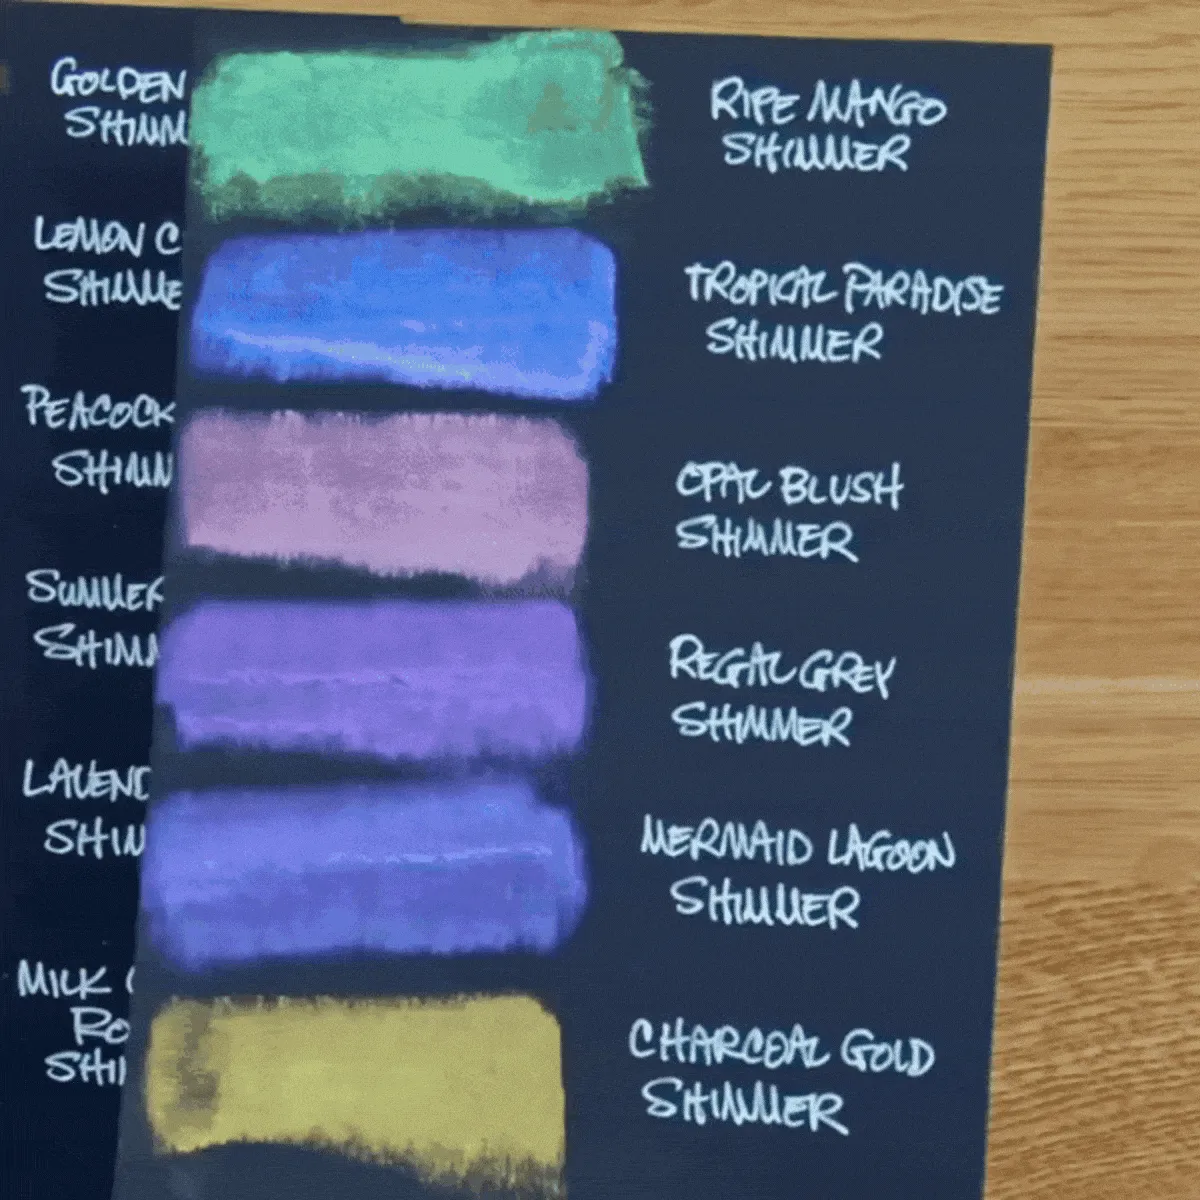 GOLDEN
SHIMM
LEMON C
SHIMME
PEACOCK
SHIMM
SUMMER
SHIMM
LAVEND
SHIM
MILK
RO
SHI
RIPE MANGO
SHIMMER
TROPICAL PARADISE
SHIMMER
OPAL BLUSH
SHIMMER
REGAL GREY
SHIMMER
MERMAID LAGOON
SHIMMER
CHARCOAL GOLD
SHIMMER